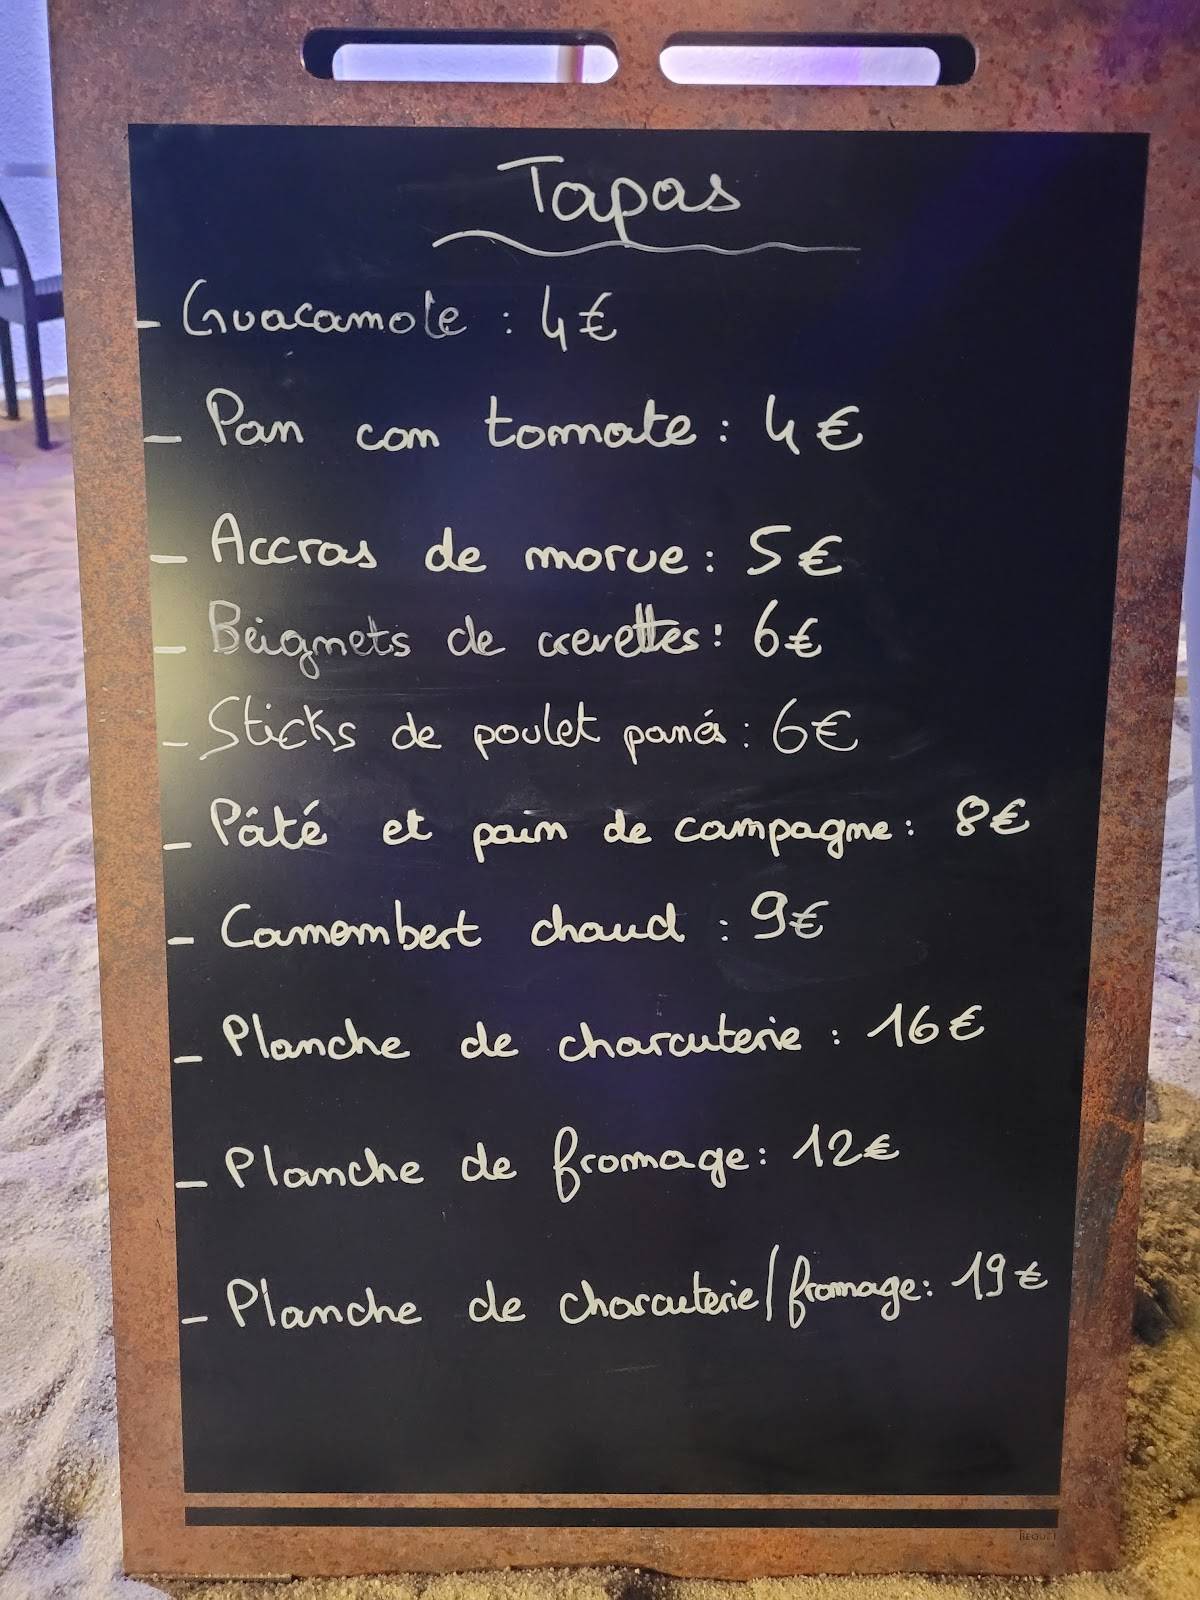 Tapas
- Guacamole : 4€
- Pan con tomate : 4€
- Accras de morue : 5€
- Beignets de crevettes : 6€
- Sticks de poulet panés : 6€
- Pâté et pain de campagne : 8€
- Camembert chaud : 9€
- Planche de charcuterie : 16€
- Planche de fromage : 12€
- Planche de charcuterie/fromage : 19€